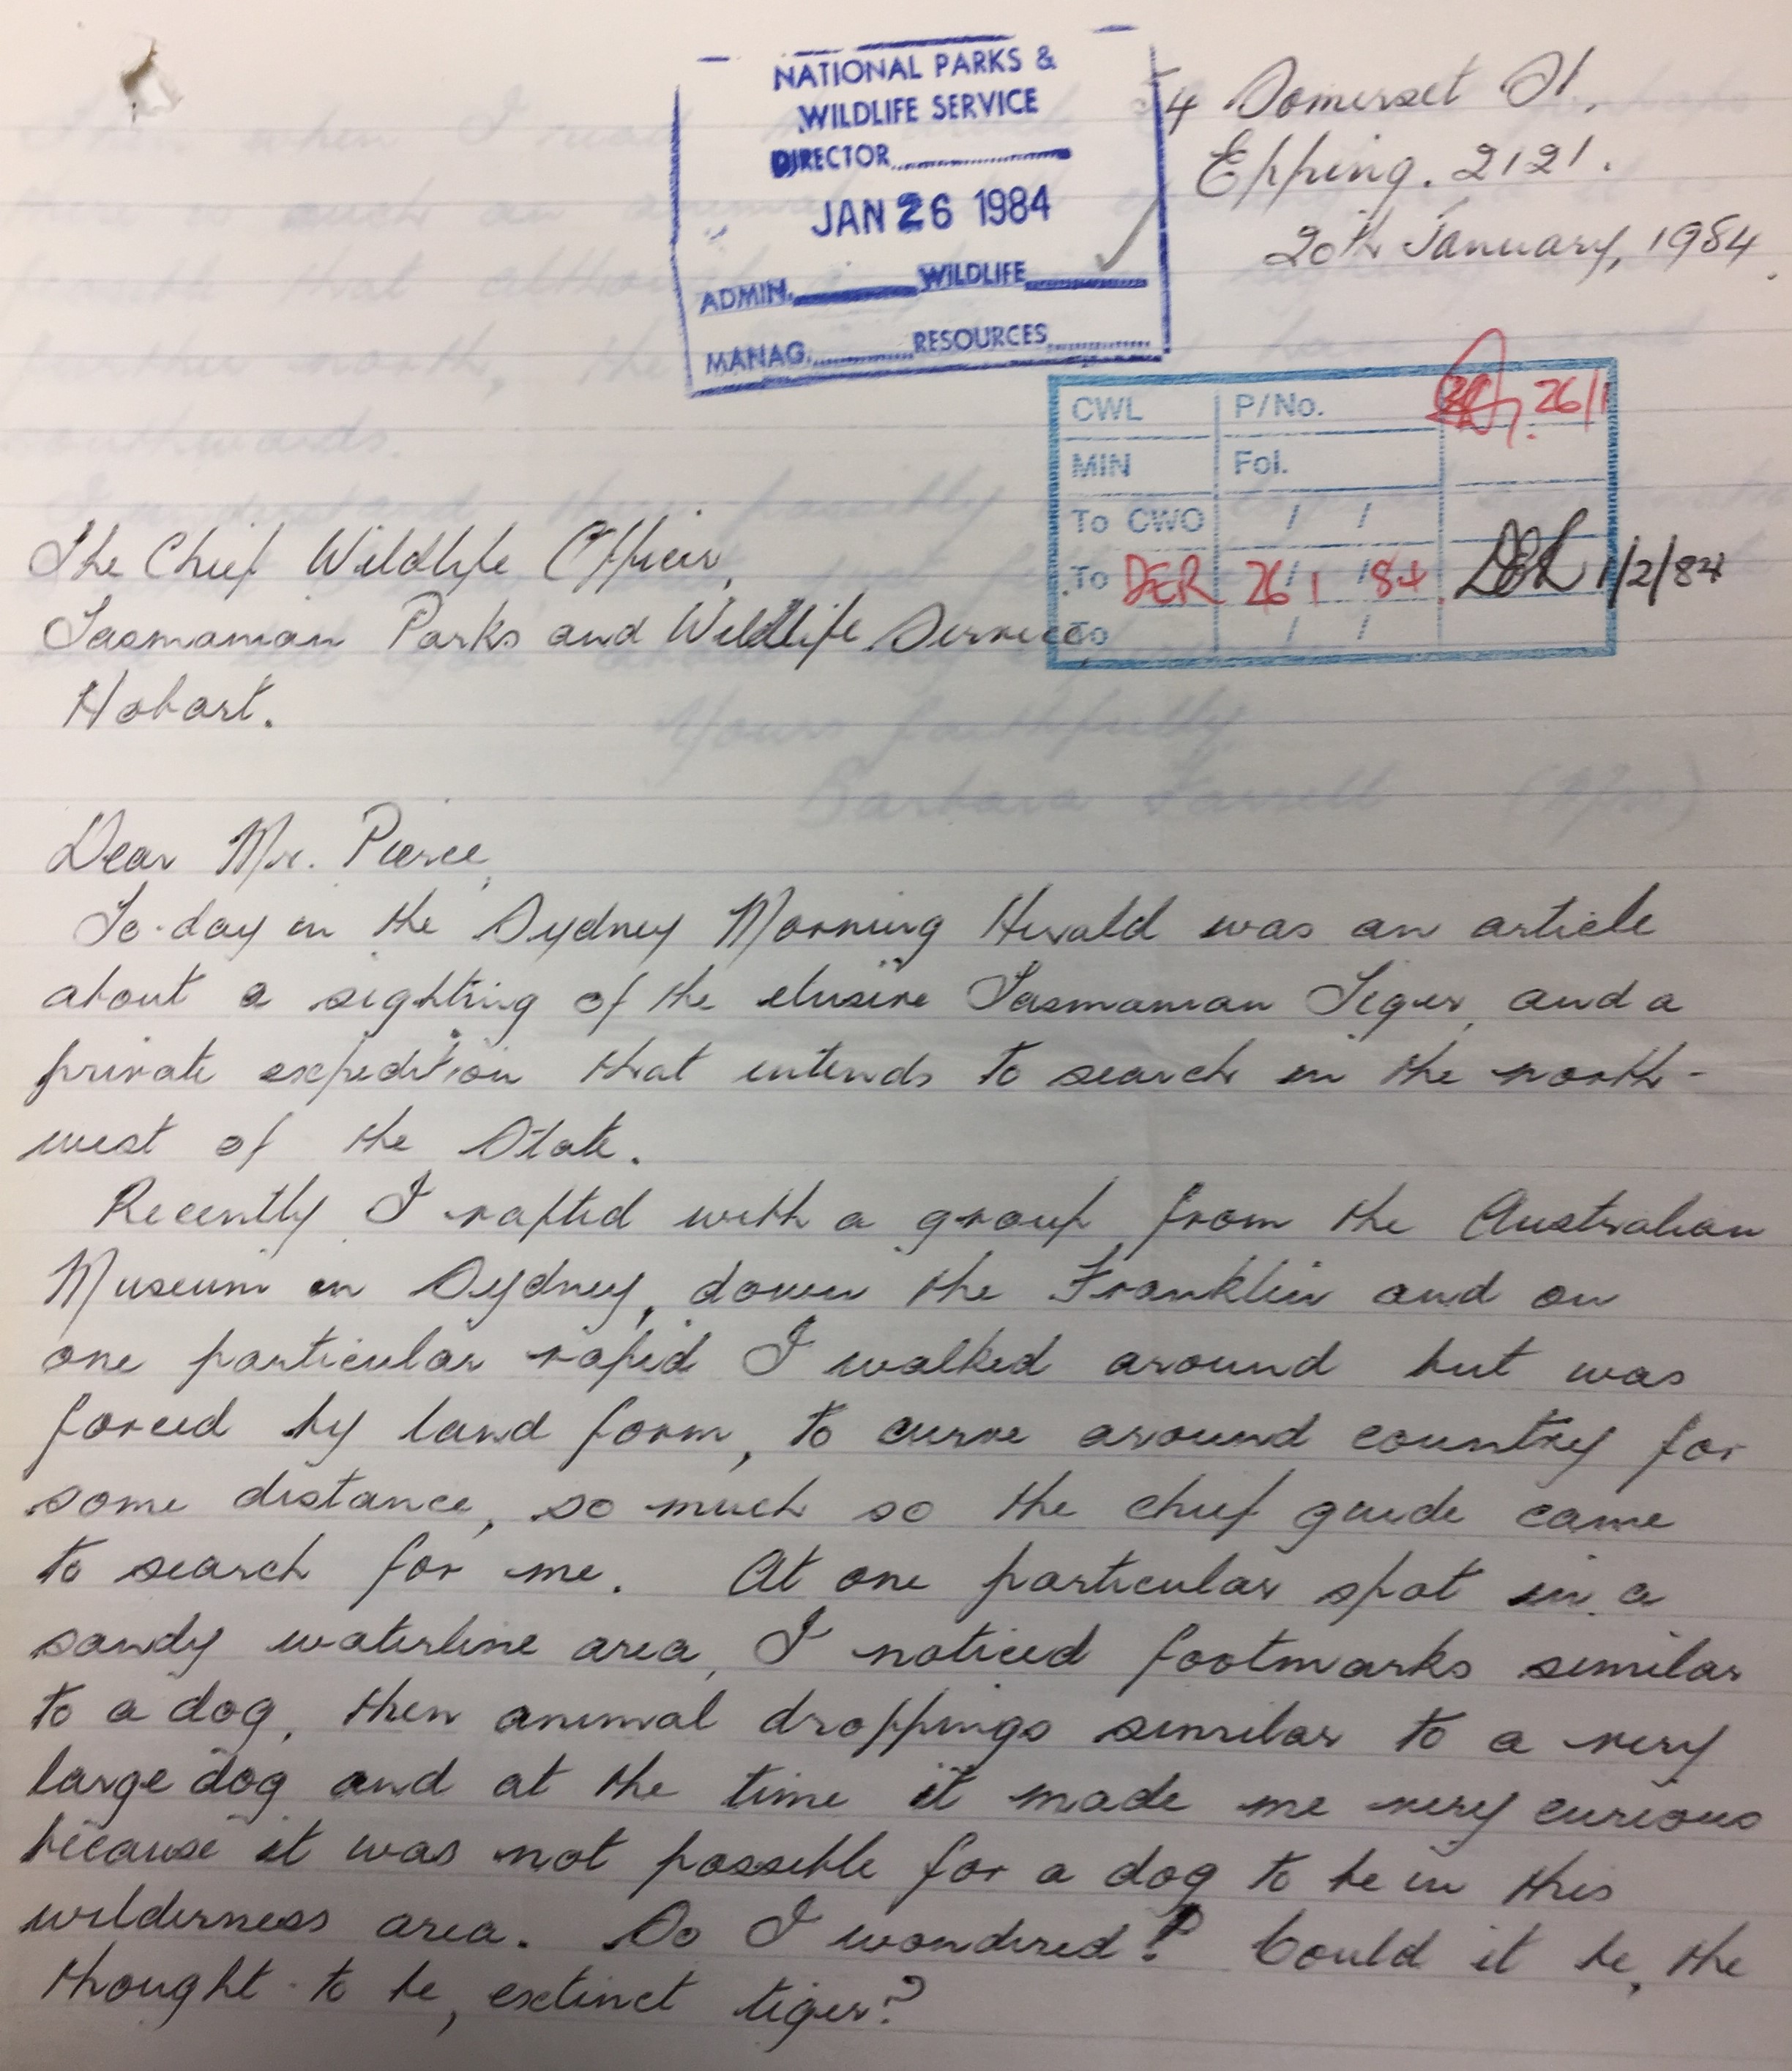 NATIONAL PARKS &
WILDLIFE SERVICE
DIRECTOR
JAN 26 1984
ADMIN. WILDLIFE
MANAG. RESOURCES
54 Somerset St,
Epping. 2121.
20th January, 1984.
CWL P/No. 26/1
MIN Fol.
To CWO / /
To DER 26/1/84 DER 1/2/84
To / /
The Chief Wildlife Officer,
Tasmanian Parks and Wildlife Service
Hobart.
Dear Mr. Pierce,
To-day in the Sydney Morning Herald was an article
about a sighting of the elusive Tasmanian Tiger, and a
private expedition that intends to search in the north-
west of the State.
Recently I rafted with a group from the Australian
Museum in Sydney, down the Franklin and on
one particular rapid I walked around but was
forced by land form, to curve around country for
some distance, so much so the chief guide came
to search for me. At one particular spot in a
sandy waterline area, I noticed footmarks similar
to a dog, then animal droppings similar to a very
large dog and at the time it made me very curious
because it was not possible for a dog to be in this
wilderness area. So I wondered? Could it be, the
thought to be, extinct tiger?
Yours faithfully
Barbara Farrell